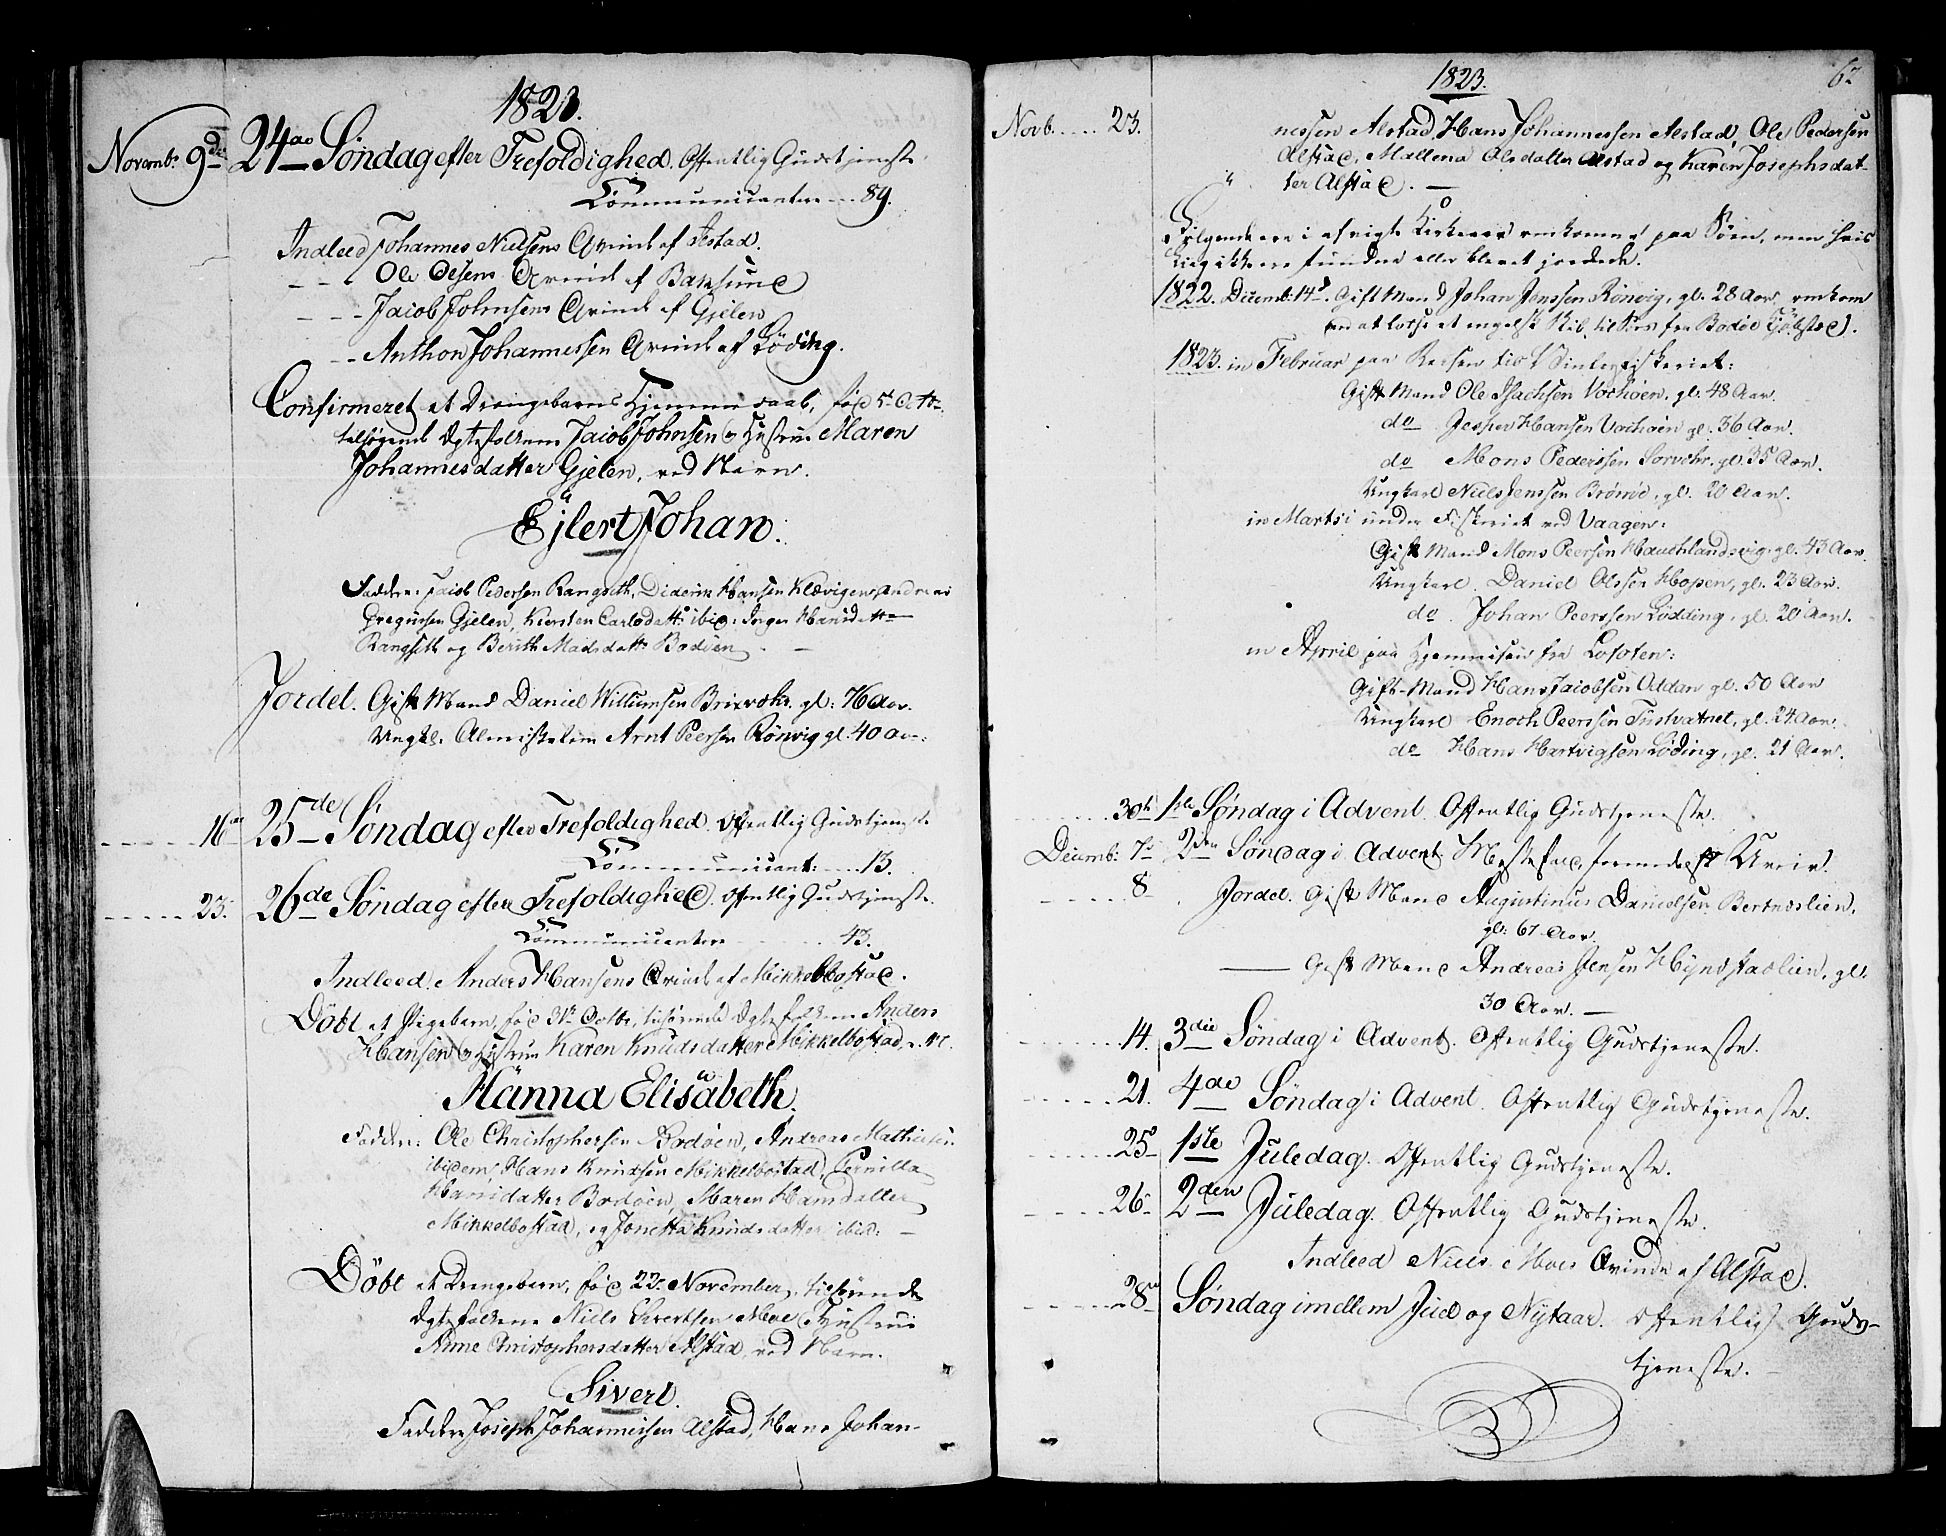 1823.
Novemb: 9de 24de Søndag efter Trefoldighed. Offentlig Gudstjeneste.
Communicantere --- 89.
Indleed Johannes Nielsens Qvinde af Jestad.
- - - Ole Olsens Qvinde af Baxsund
- - - Jacob Johnsens Qvinde af Gjelen
- - Anthon Johannessen Qvinde af Løding.
Confirmeret et Drengebarns Hjemmedaab, fød 5te Octbr.
tilhørende Ægtefolkene Jacob Johnsen og Hustrue Maren
Johannesdatter Gjelen, ved Navn.
Ejlert Johan.
Faddere: Jacob Pedersen Rangseth, Diderik Hansen Klævigen, Andreas
Gregusen Gjelen, Kiersten Carlsdatt: ibid: Inger Hansdatter
Rangseth og Berith Madsdatt: Bodøen
Jordet. Gift Mand Daniel Willumsen gl: 76 Aar.
Ungk. Almisselem Arnt Peersen Rønvig gl. 40 Aar.
16de 25de Søndag efter Trefoldighed. Offentlig Gudstjeneste
Communicant: ---- 13.
23. 26de Søndag efter Trefoldighed. Offentlig Gudstjeneste.
Communicantere ------ 43.
Indleed: Anders Hansens Qvinde af Mikkelbostad.
Døbt et Pigebarn, fød 31te Octbr, tilhørende Ægtefolkene Anders
Hansen og Hustrue Karen Knudsdatter Mikkelbostad, v. N.
Hanna Elisabeth.
Faddere: Ole Christophersen Bodøen, Andreas Mathiesen
ibidem, Hans Knudsen Mikkelbostad, Pernilla
Hansdatter Bodøen, Maren Hansdatter
Mikkelbostad, og Jonetta Knudsdatter ibid:
Døbt et Drengebarn, fød 23. November, tilhørende
Ægtefolkene Niels Sivertsen Moe Hustrue
Anne Christophersdatter Alstad, ved Navn.
Sivert.
Faddere Joseph Johannessen Alstad, Hans Johan-
1823. 62
Novb. .... 23. nessen Alstad, Hans Johannessen Alstad, Ole Pedersen
Alstad, Mallena Olsdatter Alstad og Karen Josephsdat-
ter Alstad. —
Følgende ere i afvigte Kirkeaar omkomne paa Søen, men hvis
Liig ikke ere fundne eller blevet jordede.
1822. Decemb: 14d. Gift Mand Johan Jenssen Rønvig, gl. 28 Aar, omkom
ved at lotse et engelsk Skib til Søes fra Bodøe Kjøbsted.
1823. in Februar paa Reisen til Vinterfiskeriet:
Gift Mand Ole Isachsen Vochøen, gl. 48 Aar.
do Jesper Hansen Vochøen gl. 36 Aar.
do Mons Pederssen Sorvehr, gl. 35 Aar.
Ungkarl Niels Jenssen Bromo, gl. 20 Aar.
in Martsi under Fiskeriet ved Vaagen:
Gift Mand Mons Peersen Hauchlandsvig, gl. 43 Aar
Ungkarl Daniel Olssen Hopen, gl. 23 Aar.
do. Johan Peerssen Lødding, gl. 20 Aar.
in April paa Hjemreisen fra Lofoten:
Gift-Mand Hans Jacobsen Oddan gl. 50 Aar
Ungkarl Enoch Peerssen Tustvatnet, gl. 24 Aar.
do Hans Hartvigsen Løding, gl. 21 Aar.
30te 1ste Søndag i Advent. Offentlig Gudstjeneste.
Decemb: 7de 2den Søndag i Advent. Messefald formedelst Uveir.
8 Jordet. Gift Mand Augustinus Danielsen Bertnæslien,
gl: 67 Aar.
— Gift Mand Andreas Jensen Hyndstadlien, gl.
30 Aar. —
14. 3die Søndag i Advent. Offentlig Gudstjeneste.
21. 4de Søndag i Advent. Offentlig Gudstjeneste.
25 1ste Juledag. Offentlig Gudstjeneste.
26 2den Juledag. Offentlig Gudstjeneste.
Indleed Niels Moes Qvinde af Alstad.
28de Søndag imellem Juel og Nytaar. Offentlig Guds-
tjeneste.